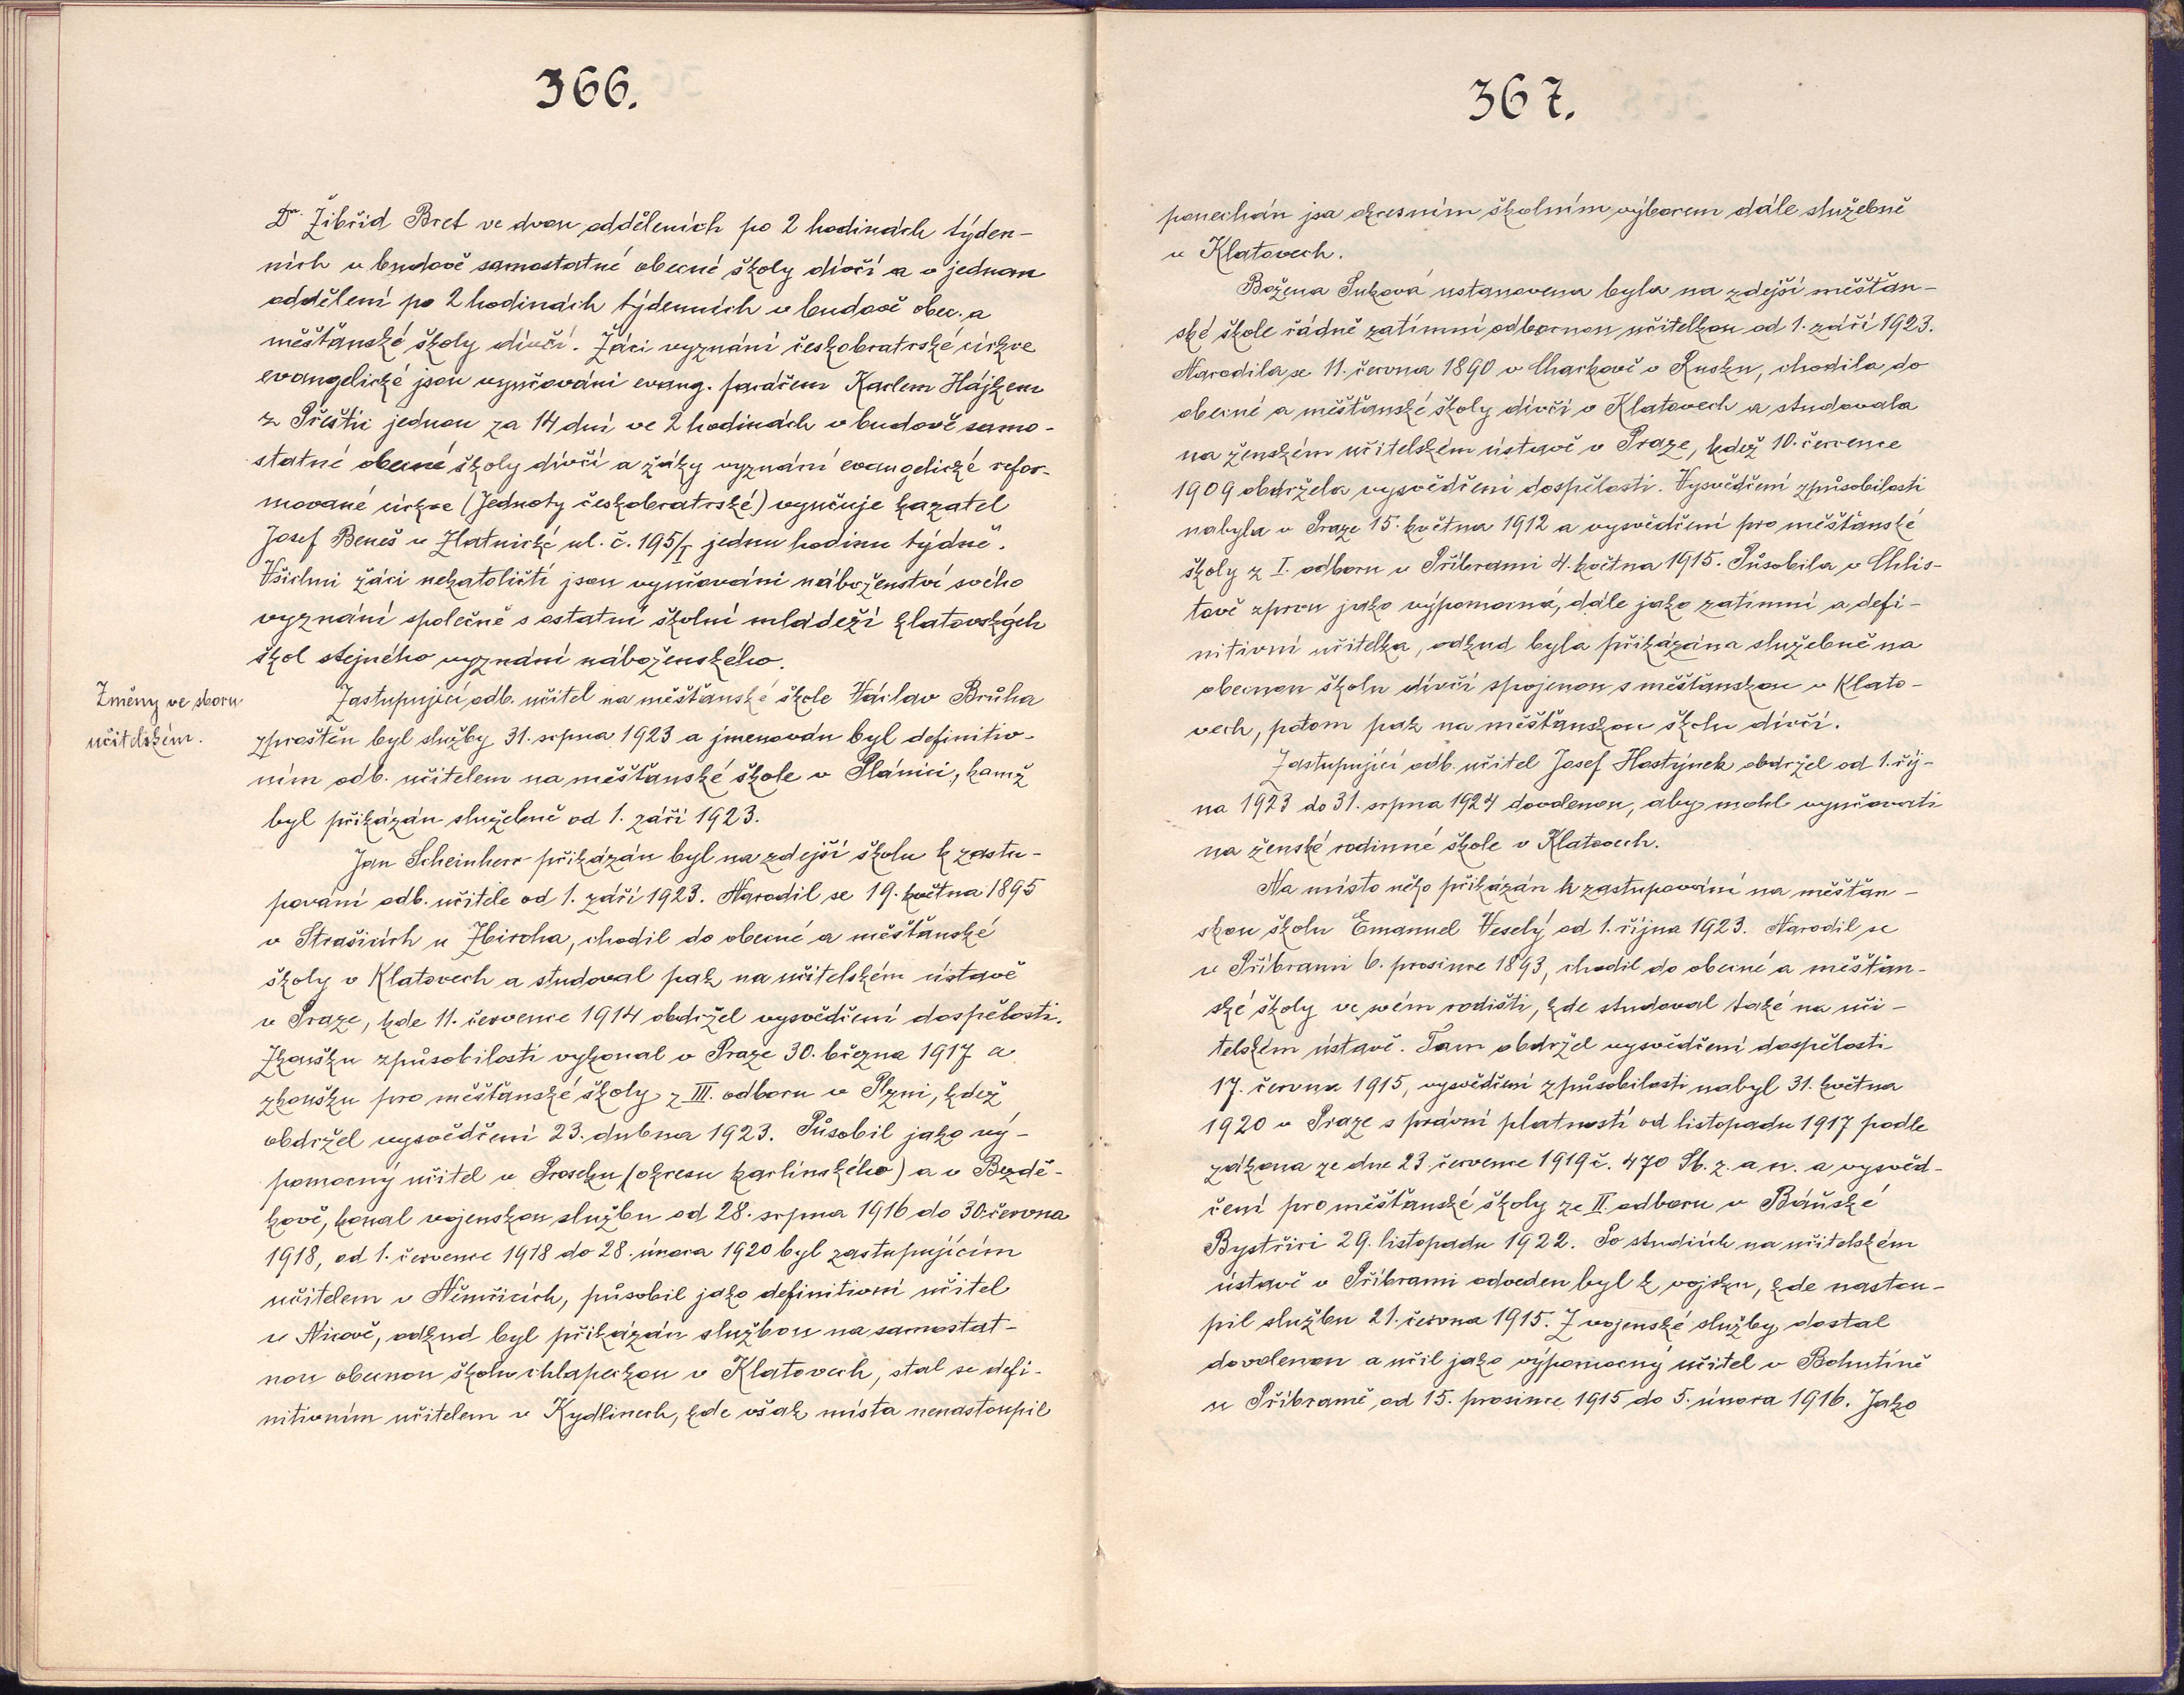 366.
Dr. Žibřid Bret ve dvou odděleních po 2 hodinách týden-
ních v budově samostatné obecné školy dívčí a v jednom
oddělení po 2 hodinách týdenních v budově obec. a
měšťanské školy dívčí. Žáci vyznání českobratrské církve
evangelické jsou vyučováni evang. farářem Karlem Hájkem
z Přeštic jednou za 14 dní ve 2 hodinách v budově samo-
statné obecné školy dívčí a žáky vyznání evangelické refor-
mované církve (Jednoty českobratrské) vyučuje kazatel
Josef Beneš v Zlatnické ul. č. 195/I jednu hodinu týdně.
Všichni žáci nekatoličtí jsou vyučováni náboženství svého
vyznání společně s ostatní školní mládeží klatovských
škol stejného vyznání náboženského.
Změny ve sboru
učitelském.
Zastupující odb. učitel na měšťanské škole Václav Brůha
zproštěn byl služby 31. srpna 1923 a jmenován byl definitiv-
ním odb. učitelem na měšťanské škole v Plánici, kamž
byl přikázán služebně od 1. září 1923.
Jan Scheinherr přikázán byl na zdejší školu k zastu-
pování odb. učitele od 1. září 1923. Narodil se 19. května 1895
v Strašicích u Zbiroha, chodil do obecné a měšťanské
školy v Klatovech a studoval pak na učitelském ústavě
v Praze, kde 11. července 1914 obdržel vysvědčení dospělosti.
Zkoušku způsobilosti vykonal v Praze 30. března 1917 a
zkoušku pro měšťanské školy z III. odboru v Plzni, kdež
obdržel vysvědčení 23. dubna 1923. Působil jako vý-
pomocný učitel v Proseku (okresu karlínského) a v Bezdě-
kově, konal vojenskou službu od 28. srpna 1916 do 30. června
1918, od 1. července 1918 do 28. února 1920 byl zastupujícím
učitelem v Němčicích, působil jako definitivní učitel
v Nicově, odkud byl přikázán službou na samostat-
nou obecnou školu chlapeckou v Klatovech, stal se defi-
nitivním učitelem v Kydlinech, kde však místa nenastoupil
367.
ponechán jsa okresním školním výborem dále služebně
v Klatovech.
Božena Suková ustanovena byla na zdejší měšťan-
ské škole řádně zatímní odbornou učitelkou od 1. září 1923.
Narodila se 11. června 1890 v Charkově v Rusku, chodila do
obecné a měšťanské školy dívčí v Klatovech a studovala
na ženském učitelském ústavě v Praze, kdež 10. července
1909 obdržela vysvědčení dospělosti. Vysvědčení způsobilosti
nabyla v Praze 15. května 1912 a vysvědčení pro měšťanské
školy z I. odboru v Příbrami 4. května 1915. Působila v Chlis-
tově zprvu jako výpomocná, dále jako zatímní a defi-
nitivní učitelka, odkud byla přikázána služebně na
obecnou školu dívčí spojenou s měšťanskou v Klato-
vech, potom pak na měšťanskou školu dívčí.
Zastupující odb. učitel Josef Hostýnek obdržel od 1. říj-
na 1923 do 31. srpna 1924 dovolenou, aby mohl vyučovati
na ženské rodinné škole v Klatovech.
Na místo něho přikázán k zastupování na měšťan-
skou školu Emanuel Veselý od 1. října 1923. Narodil se
v Příbrami 6. prosince 1893, chodil do obecné a měšťan-
ské školy ve svém rodišti, kde studoval také na uči-
telském ústavě. Tam obdržel vysvědčení dospělosti
17. června 1915, vysvědčení způsobilosti nabyl 31. května
1920 v Praze s právní platností od listopadu 1917 podle
zákona ze dne 23. července 1919 č. 470 Sb. z. a n. a vysvěd-
čení pro měšťanské školy ze II. odboru v Báňské
Bystřici 29. listopadu 1922. Po studiích na učitelském
ústavě v Příbrami odveden byl k vojsku, kde nastou-
pil službu 21. června 1915. Z vojenské služby dostal
dovolenou a učil jako výpomocný učitel v Bohutíně
u Příbramě od 15. prosince 1915 do 5. února 1916. Jako